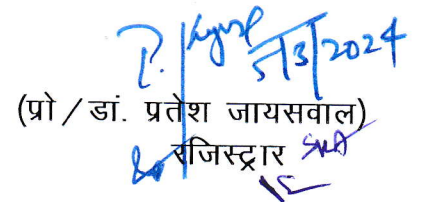 5/3/2024
(प्रो / डां. प्रतेश जायसवाल)
रजिस्ट्रार